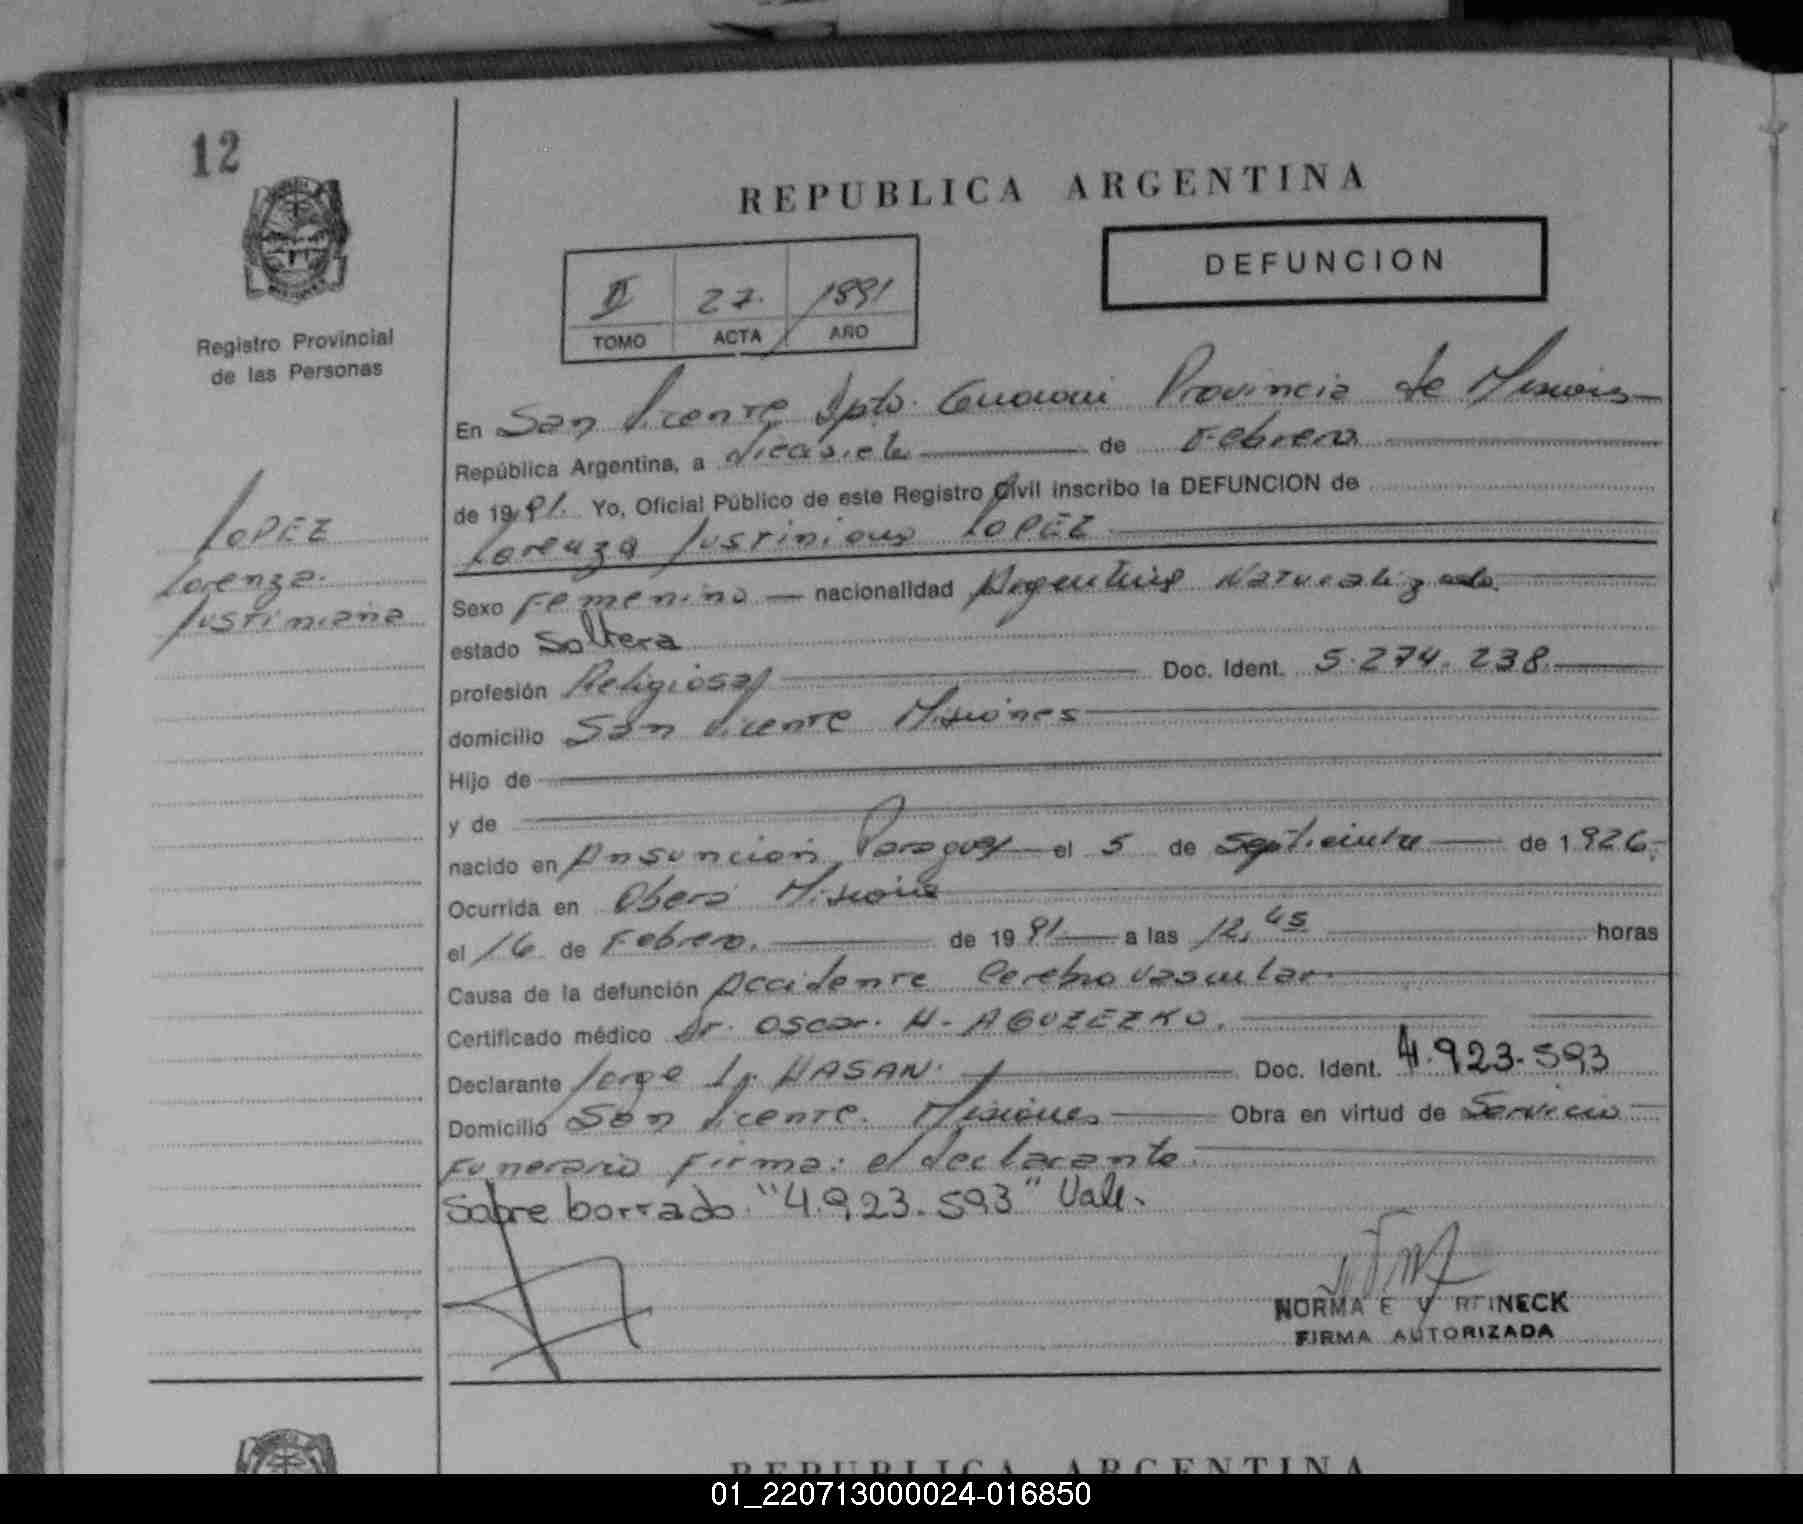 12
REPUBLICA ARGENTINA
DEFUNCION
Registro Provincial
de las Personas
II 27. 1991
TOMO ACTA AÑO
En San Vicente Dpto. Guarani Provincia de Misiones
República Argentina, a diecisiete de Febrero
de 1991. Yo, Oficial Público de este Registro Civil inscribo la DEFUNCION de
Lorenza Justiniana LOPEZ
LOPEZ
Lorenza.
Justiniana
Sexo Femenino nacionalidad Argentina Naturalizada.
estado Soltera
profesión Religiosa Doc. Ident. 5.274.238.
domicilio San Vicente Misiones
Hijo de
y de
nacido en Ansuncion Paraguay el 5 de Septiembre de 1926.
Ocurrida en Oberá Misiones
el 16 de Febrero. de 1991 a las 12,45 horas
Causa de la defunción Accidente Cerebro vascular.
Certificado médico Dr. Oscar. H. AGUZEZKO.
Declarante Jorge L. HASAN. Doc. Ident. 4.923.593
Domicilio San Vicente. Misiones Obra en virtud de Servicio
Funerario Firma: el declarante.
Sobre borrado "4.923.593" Vale.
NORMA E V REINECK
FIRMA AUTORIZADA
REPUBLICA ARGENTINA
01_220713000024-016850